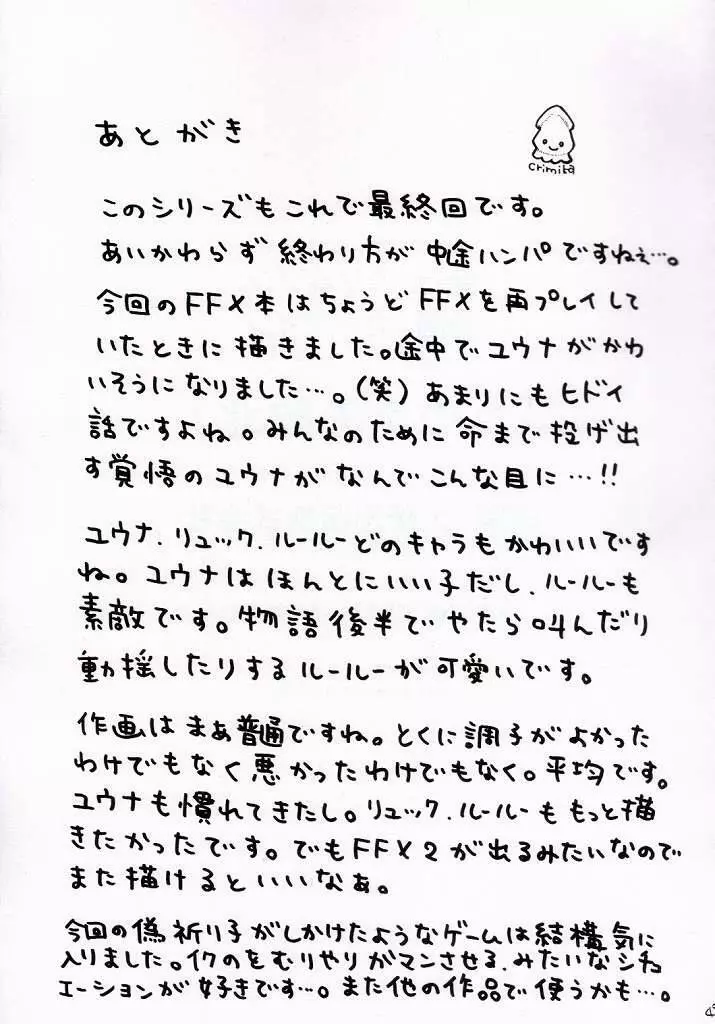 あとがき
crimita
このシリーズもこれで最終回です。
あいかわらず終わり方が中途ハンパですねぇ…。
今回のFFX本はちょうどFFXを再プレイして
いたときに描きました。途中でユウナがかわ
いそうになりました…。(笑)あまりにもヒドイ
話ですよね。みんなのために命まで投げ出
す覚悟のユウナがなんでこんな目に…!!
ユウナ、リュック、ルールーどのキャラもかわいいです
ね。ユウナはほんとにいい子だし、ルールーも
素敵です。物語後半でやたら叫んだり
動揺したりするルールーが可愛いです。
作画はまあ普通ですね。とくに調子がよかった
わけでもなく悪かったわけでもなく。平均です。
ユウナも慣れてきたし。リュック、ルールーももっと描
きたかったです。でもFFX2が出るみたいなので
また描けるといいなぁ。
今回の偽祈り子がしかけたようなゲームは結構気に
入りました。イクのをむりやりガマンさせる、みたいなシチュ
エーションが好きです…。また他の作品で使うかも…。